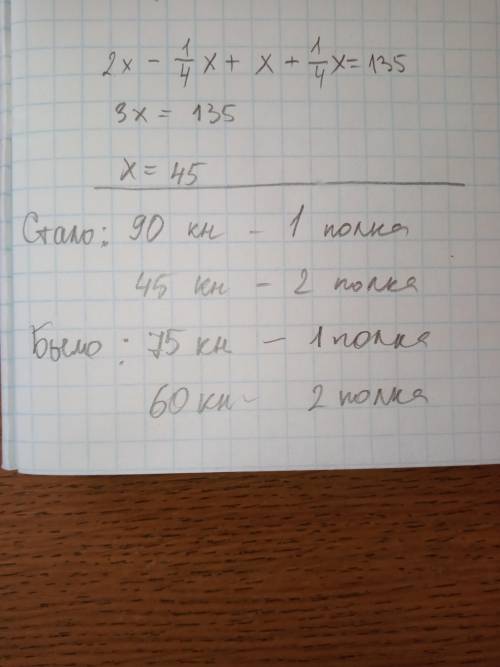 2x - 1/4 x + x + 1/4 x = 135
3x = 135
x = 45
Стало: 90 кн - 1 полка
45 кн - 2 полка
Было: 75 кн - 1 полка
60 кн - 2 полка